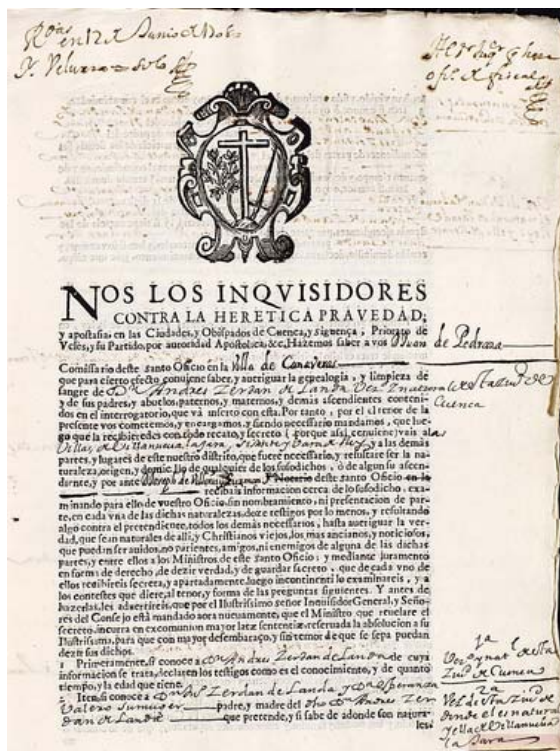 en 12 de Junio de
NOS LOS INQVISIDORES
CONTRA LA HERETICA PRAVEDAD,
y apostasia, en las Ciudades, y Obispados de Cuenca, y siguença, Priorato de
Vcles, y su Partido, por autoridad Apostolica, &c. Hazemos saber a vos Juan de Pedraza
Comissario deste santo Oficio en la Villa de Canaveras
que para cierto efecto conuiene saber, y aueriguar la genealogia, y limpieza de
sangre de D. Andres Zerdan de Landa
Cuenca
y de sus padres, y abuelos paternos, y maternos, y demàs ascendientes conteni-
dos en el interrogatorio, que và inserto con esta. Por tanto, por el tenor de la
presente vos cometemos, y encargamos, y siendo necessario mandamos, que lue-
go que la recibieredes con todo recato, y secreto (porque assi conuiene) vais a las
Villas de Villanueua la Jara y a las demàs
partes, y lugares de este nuestro distrito, que fuere necessario, y resultare ser la na-
turaleza, origen, y domicilio de qualquier de los susodichos, ò de algun su ascen-
dente, y por ante Notario deste santo Oficio en la
recibais informacion cerca de lo susodicho, exa-
minando para ello de vuestro Oficio, sin nombramiento, ni presentacion de par-
te, en cada vna de las dichas naturalezas, doze testigos por lo menos, y resultando
algo contra el pretendiente, todos los demàs necessarios, hasta aueriguar la ver-
dad, que sean naturales de alli, y Christianos viejos, los mas ancianos, y noticiosos,
que puedan ser auidos, no parientes, amigos, ni enemigos de alguna de las dichas
partes, y entre ellos a los Ministros de este santo Oficio; y mediante juramento
en forma de derecho, de dezir verdad, y de guardar secreto, que de cada vno de
ellos recibireis secreta, y apartadamente, luego incontinenti lo examinareis, y a
los contestes que diere, al tenor, y forma de las preguntas siguientes. Y antes de
hazerlas, les aduertireis, que por el Ilustrissimo señor Inquisidor General, y Seño-
res del Consejo està mandado aora nueuamente, que el Ministro que reuelare el
secreto, incurra en excomunion mayor latæ sententiæ, reseruada la absolucion a su
Ilustrissima, para que con mayor desembarazo, y sin temor de que se sepa puedan
dezir sus dichos.
1 Primeramente, si conoce a D. Andres Zerdan de Landa de cuya
informacion se trata, declaren los testigos como es el conocimiento, y de quanto
tiempo, y la edad que tiene.
2 Iten, si conoce a Zerdan de Landa y D. Esperanza
Valero su muger padre, y madre del dho D. Andres Zer
dan de Landa que pretende, y si sabe de adonde son natura-
les;
1a
de Cuenca
2a